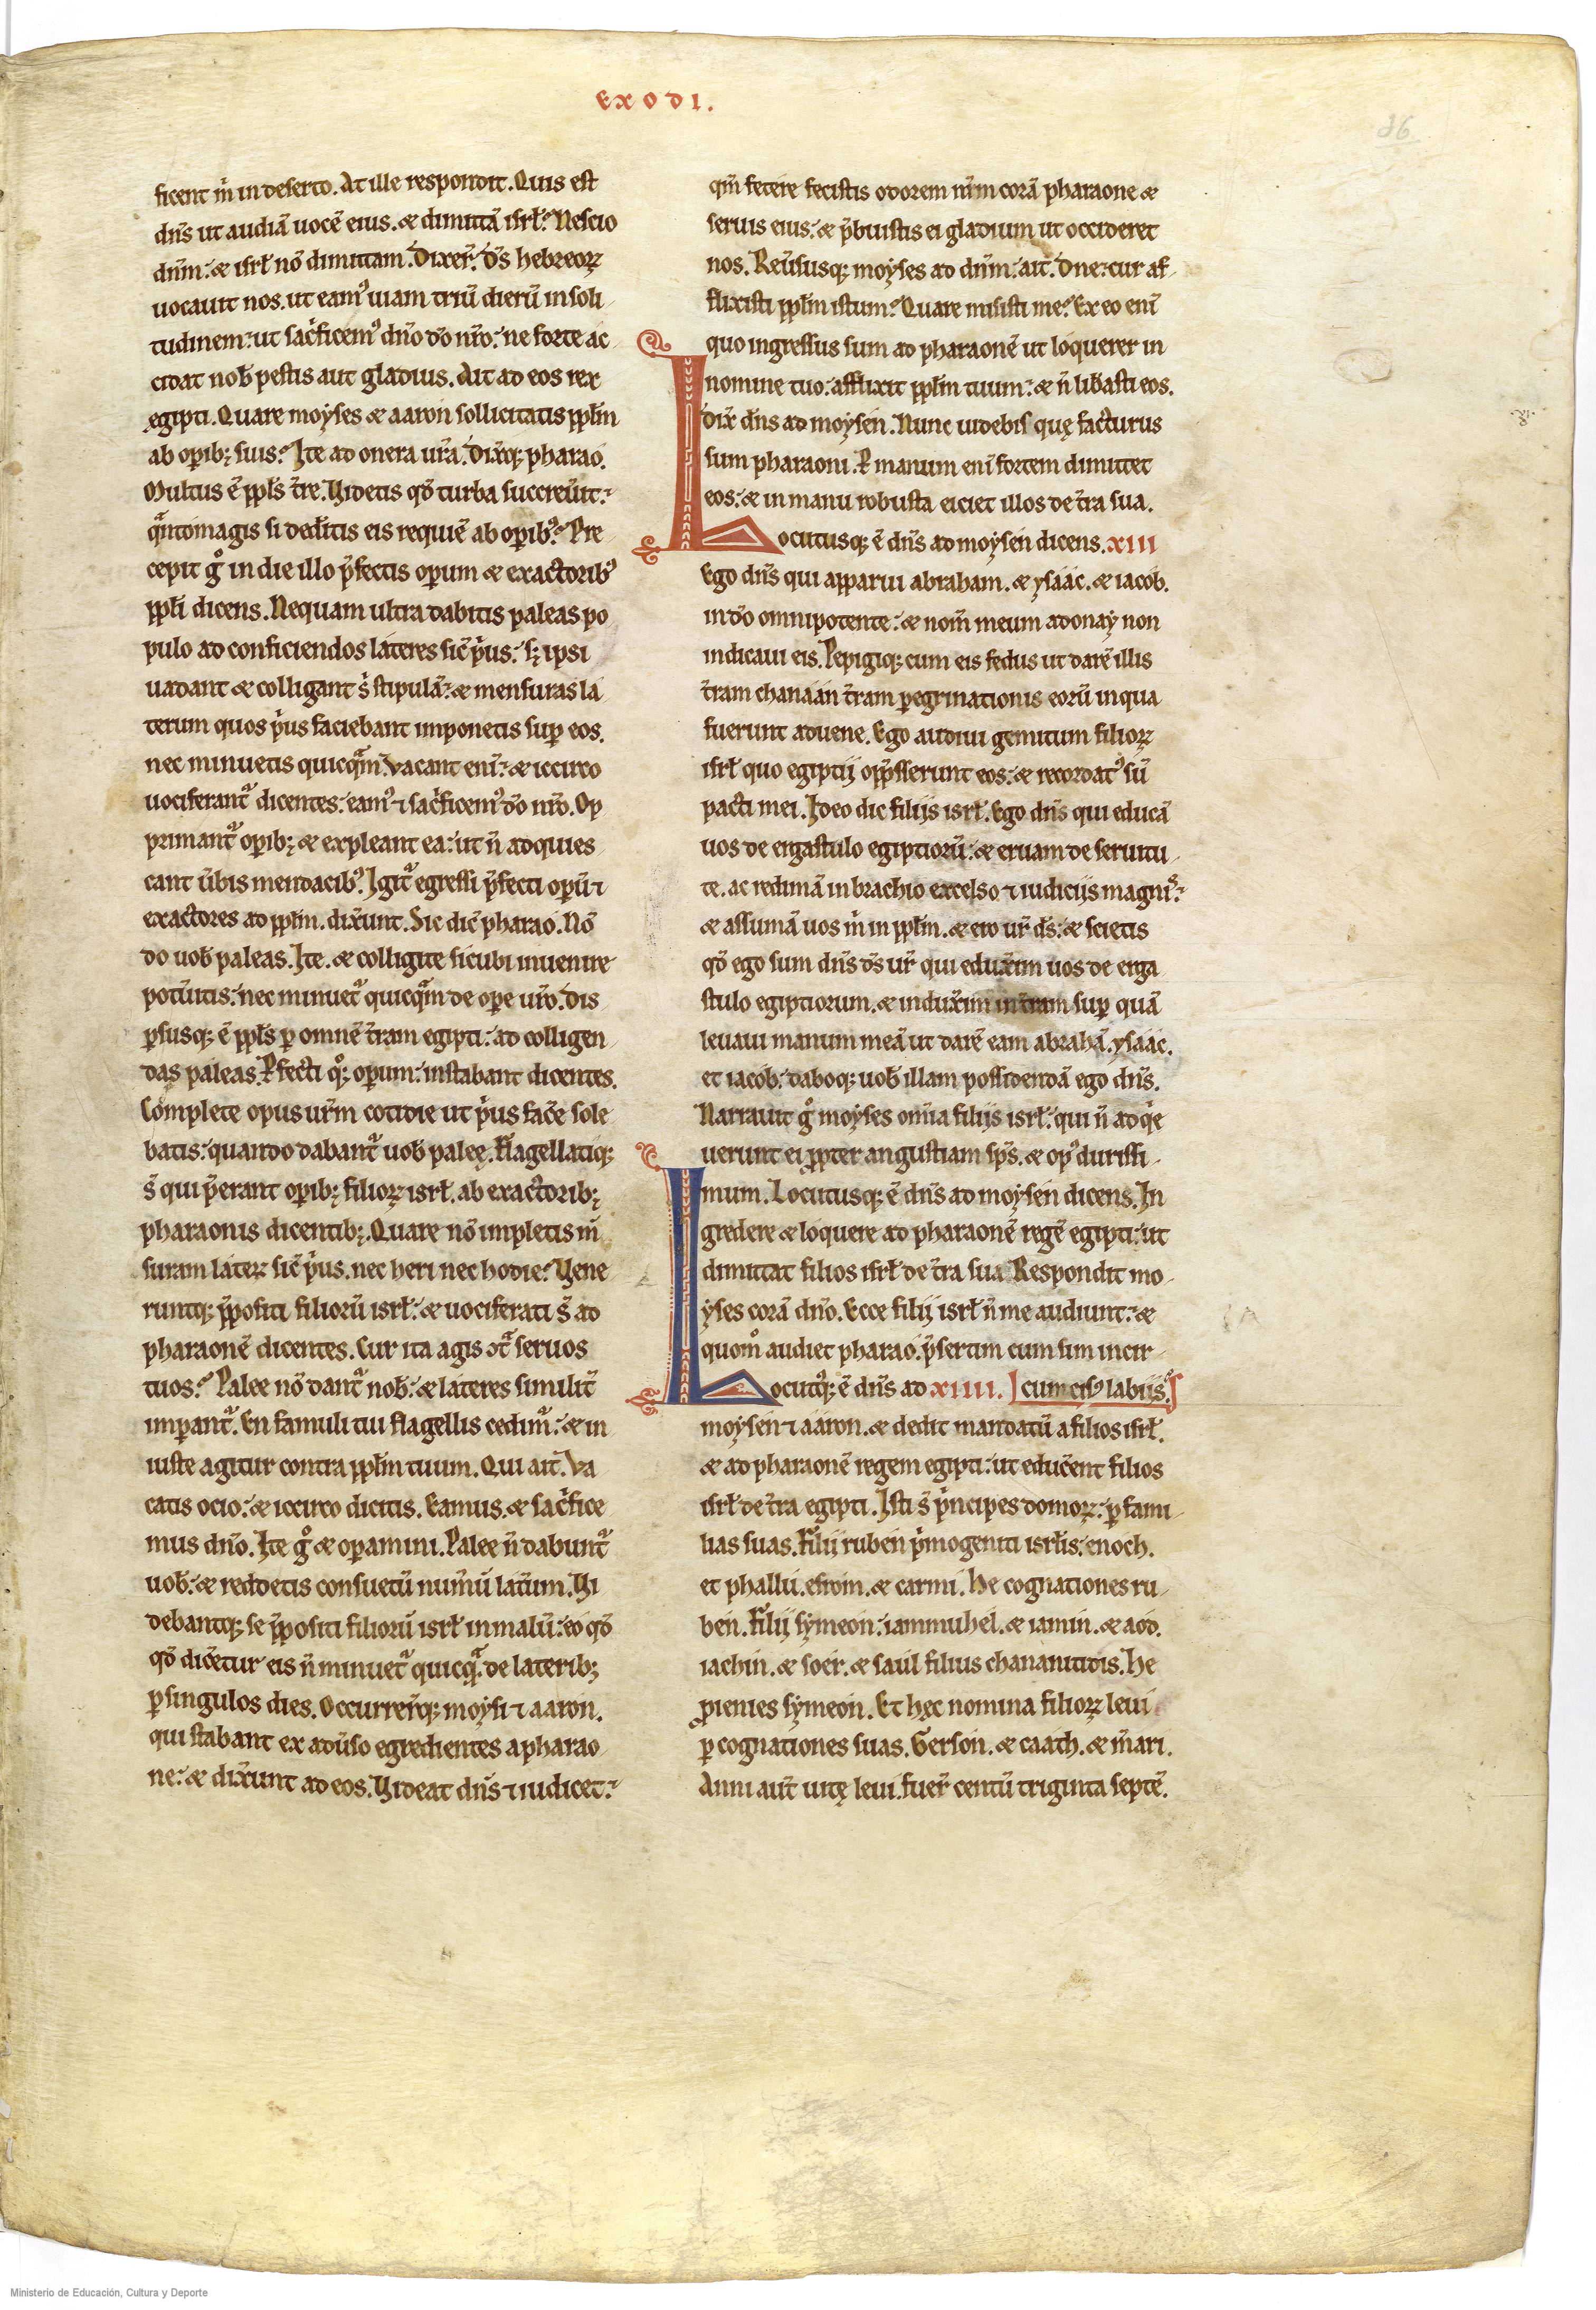 EXODI.
36
ficent m̄ in deserto. At ille respondit. Quis est
dn̄s ut audiā uocē eius. & dimittā isrł? Nescio
dn̄m: & isrł nō dimittam. Dixer̄. d̄s hebreoꝝ
uocauit nos. ut eamꝰ uiam triū dierū in soli
tudinem: ut sacͥficemꝰ dn̄o d̄o nr̄o: ne forte ac
cidat nob̄ pestis aut gladius. Ait ad eos rex
egipti. Quare moyses & aaron sollicitatis pp̄lm
ab op̄ib; suis? Ite ad onera ur̄a. Dix̄q; pharao.
Multus ē pp̄ls t̄re. Videtis qđ turba succreu̅it:
qͣntomagis si ded̄itis eis requiē ab op̄ibꝰ? Pre
cepit g̊ in die illo p̄fectis op̄um & exactoribꝰ
pp̄li dicens. Nequam ultra dabitis paleas po
pulo ad conficiendos lateres sic̄ pͥus: sꝫ ipsi
uadant & colligant s̄ stipulā: & mensuras la
terum quos pͥus faciebant imponetis suꝑ eos.
nec minuetis quicqͣm. Vacant eni̅: & iccirco
uociferantᷣ dicentes: eamꝰ ⁊ sacͥficemꝰ d̄o nr̄o. Op
primantᷣ op̄ib; & expleant ea: ut n̄ adquies
cant ūbis mendacibꝰ. Igitᷣ egressi p̄fecti opū ⁊
exactores ad pp̄lm. dix̄unt. Sic dic̄ pharao. Nō
do uob̄ paleas. Ite. & colligite sicubi inuenire
potūitis: nec minuetᷣ quicqͣm de ope ur̄o. Dis
ꝑsusq; ē pp̄ls ꝑ omnē t̄ram egipti: ad colligen
das paleas. P̄fecti q̊; op̄um: instabant dicentes.
Complete opus ur̄m cotidie ut pͥus fac̄e sole
batis: quando dabantᷣ uob̄ paleę. Flagellatiq;
s̄ qui p̄erant op̄ib; filioꝝ isrł. ab exactorib;
pharaonis dicentib;. Quare nō impletis m̄
suram lateꝝ sic̄ pͥus. nec heri nec hodie? Vene
runtq; p̄positi filiorū isrł: & uociferati s̄ ad
pharaonē dicentes. Cur ita agis ɔtͣ seruos
tuos? Palee nō dantᷣ nob̄: & lateres similit̄
imꝑantᷣ. En famuli tui flagellis cedimᷣ: & in
iuste agitur contra pp̄lm tuum. Qui ait. Va
catis ocio: & iccirco dicitis. Eamus. & sacͥfice
mus dn̄o. Ite g̊ & oꝑamini. Palee n̄ dabuntᷣ
uob̄: & reddetis consuetū num̄ū lat̄um. Vi
debantq; se p̄positi filiorū isrł in malū: eo qđ
qđ dic̄etur eis n̄ minuetᷣ quicqͣ. de laterib;
ꝑ singulos dies. Occurrer̄q; moysi ⁊ aaron.
qui stabant ex adūso egredientes a pharao
ne: & dix̄unt ad eos. Videat dn̄s ⁊ iudicet:
qm̄ fetere fecistis odorem nr̄m corā pharaone &
seruis eius: & p̄buistis ei gladium ut occideret
nos. Reūsusq; moyses ad dn̄m: ait. Dne: cur af
flixisti pp̄lm istum? Quare misisti me? Ex eo eni̅
quo ingressus sum ad pharaonē ut loquerer in
nomine tuo: afflixit pp̄lm tuum: & n̄ lib̄asti eos.
Dix̄ dn̄s ad moysen. Nunc uidebis quę facturus
sum pharaoni. P manum eni̅ fortem dimittet
eos: & in manu robusta eiciet illos de t̄ra sua.
Locutusq; ē dn̄s ad moysen dicens. XIII
Ego dn̄s qui apparui abraham. & ysaac. & iacob.
in d̄o omnipotente: & nom̄ meum adonay non
indicaui eis. Pepigiq; cum eis fedus ut darē illis
t̄ram chanaan t̄ram ꝑegrinationis eorū in qua
fuerunt aduene. Ego audiui gemitum filioꝝ
isrł quo egiptij opp̄sserunt eos: & recordatꝰ sū
pacti mei. Ideo dic filijs isrł. Ego dn̄s qui educā
uos de ergastulo egiptiorū: & eruam de seruitu
te. ac redimā in brachio excelso ⁊ iudicijs magnis:
& assumā uos m̄ in pp̄lm. & ero ur̄ d̄s: & scietis
qđ ego sum dn̄s d̄s ur̄ qui edux̄im uos de erga
stulo egiptiorum. & indux̄im in t̄ram suꝑ quā
leuaui manum meā ut darē eam abrahā. ysaac.
et iacob: daboq; uob̄ illam possidendā ego dn̄s.
Narrauit g̊ moyses om̄ia filijs isrł: qui n̄ adqͥe
uerunt ei ꝓpter angustiam sp̄s. & opꝰ durissi
mum. Locutusq; ē dn̄s ad moysen dicens. In
gredere & loquere ad pharaonē regē egipti: ut
dimittat filios isrł de t̄ra sua. Respondit mo
yses corā dn̄o. Ecce filij isrł n̄ me audiunt: &
quom̊ audiet pharao. p̄sertim cum sim incir
Locutq; ē dn̄s ad XIIII. cumcisꝰ labijs?
moysen ⁊ aaron. & dedit mandatū a filios isrł.
& ad pharaonē regem egipti: ut educ̄ent filios
isrł de t̄ra egipti. Isti s̄ pͥncipes domoꝝ: ꝑ fami
lias suas. Filij ruben pͥmogeniti isrłis: enoch.
et phallu. esrom. & carmi. He cognationes ru
ben. Filij symeon: iammuhel. & iamin. & aod.
iachin. & soer. & saul filius chananitidis. He
ꝓienies symeon. Et hęc nomina filioꝝ leui
ꝑ cognationes suas. Gerson. & caath. & m̄ari.
Anni aūt uitę leui. fuer̄ centū triginta septē.
Ministerio de Educación, Cultura y Deporte